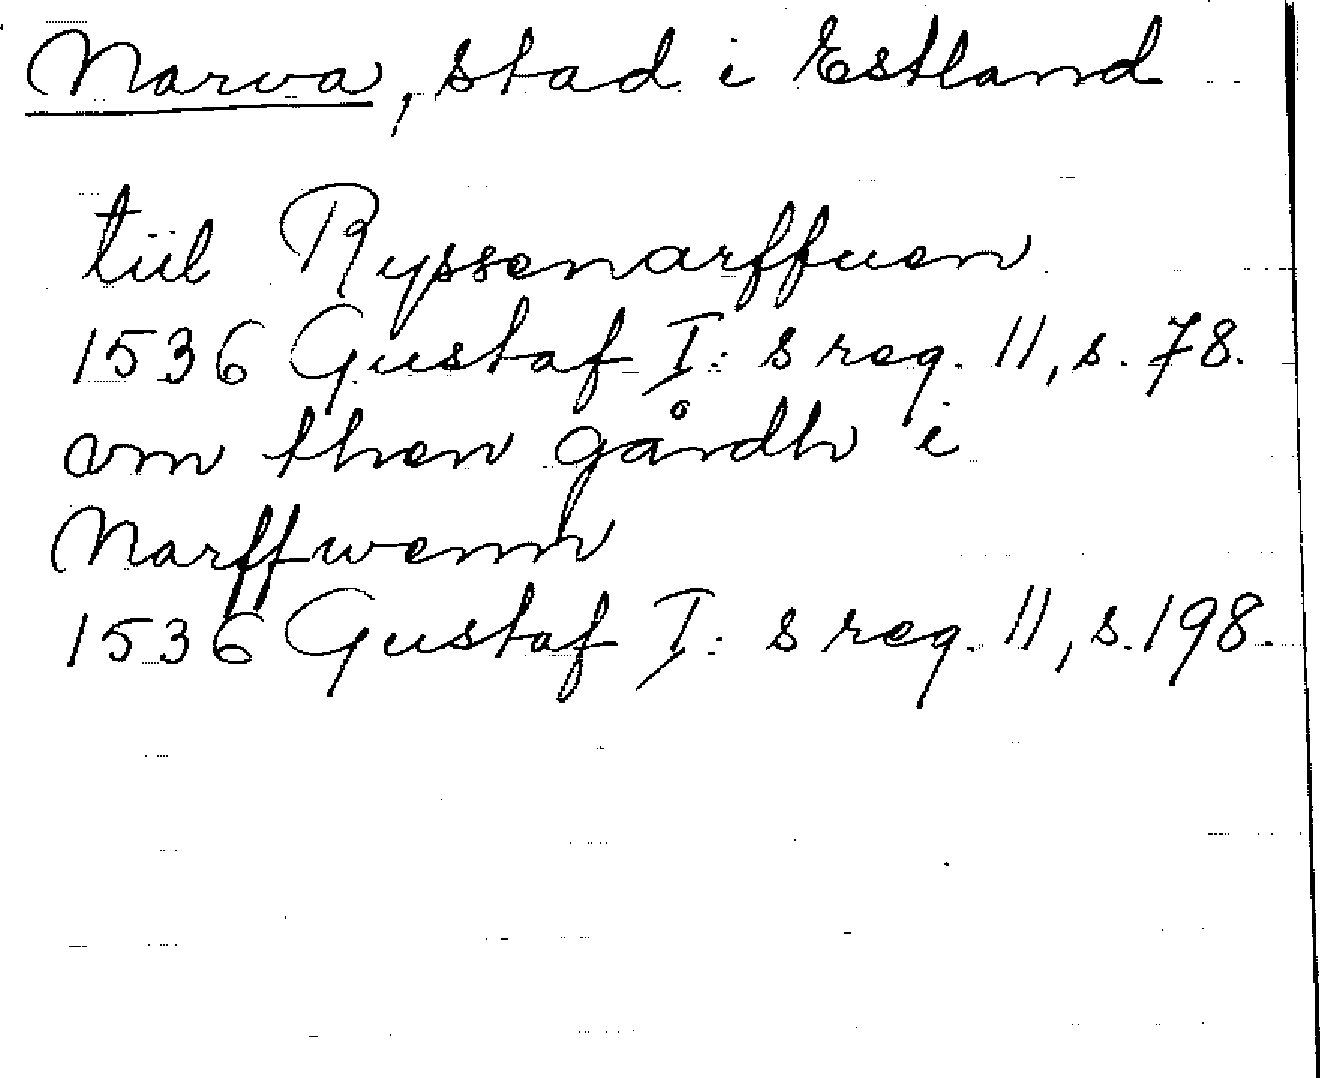 Narva, stad i Estland
tiil Ryssenarffuen
1536 Gustaf I: s reg. 11, s. 78.
om then gårdh i
Narffwenn
1536 Gustaf I: s reg. 11, s. 198.